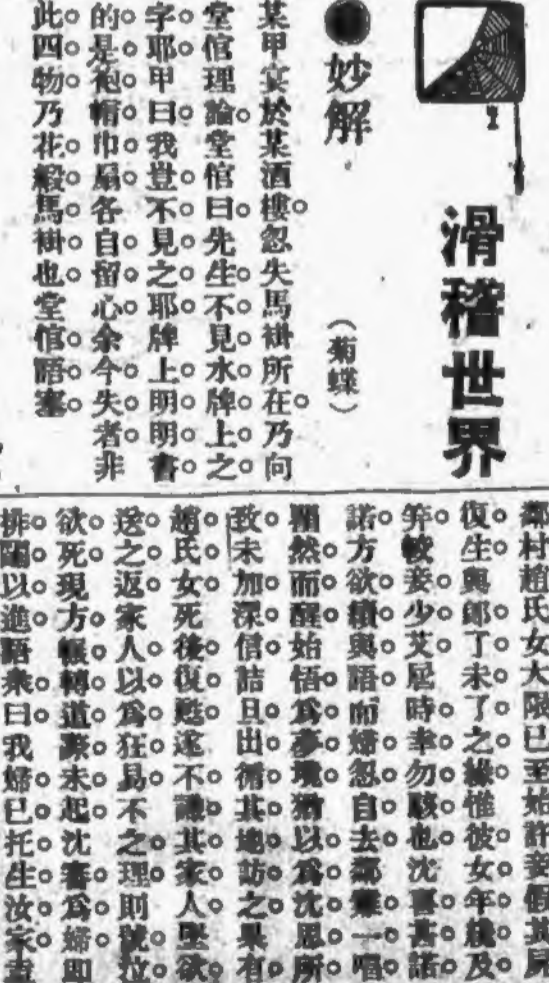 滑稽世界
妙解
（菊蝶）
某甲宴於某酒樓忽失馬褂所在乃向
堂倌理論堂倌曰先生不見水牌上之
字耶甲曰我豈不見之耶牌上明明書
的是袍帽巾扇各自留心余今失者非
此四物乃花緞馬褂也堂倌語塞
鄰村趙氏女大限已至始許妾假其屍
復生與郎了未了之緣惟彼女年纔及
笄較妾少艾屆時幸勿駭也沈喜甚諾
諾方欲續與語而婦忽自去鄰雞一唱
然而醒始悟為夢境猶以為沈思所
致未加深信詰旦出循其地訪之果有
趙氏女死後復甦遂不識其家人堅欲
送之返家人以為狂易不之理則號泣
欲死現方輾轉道來起沈審為婦即
排闥以進語衆曰我婦已托生汝家